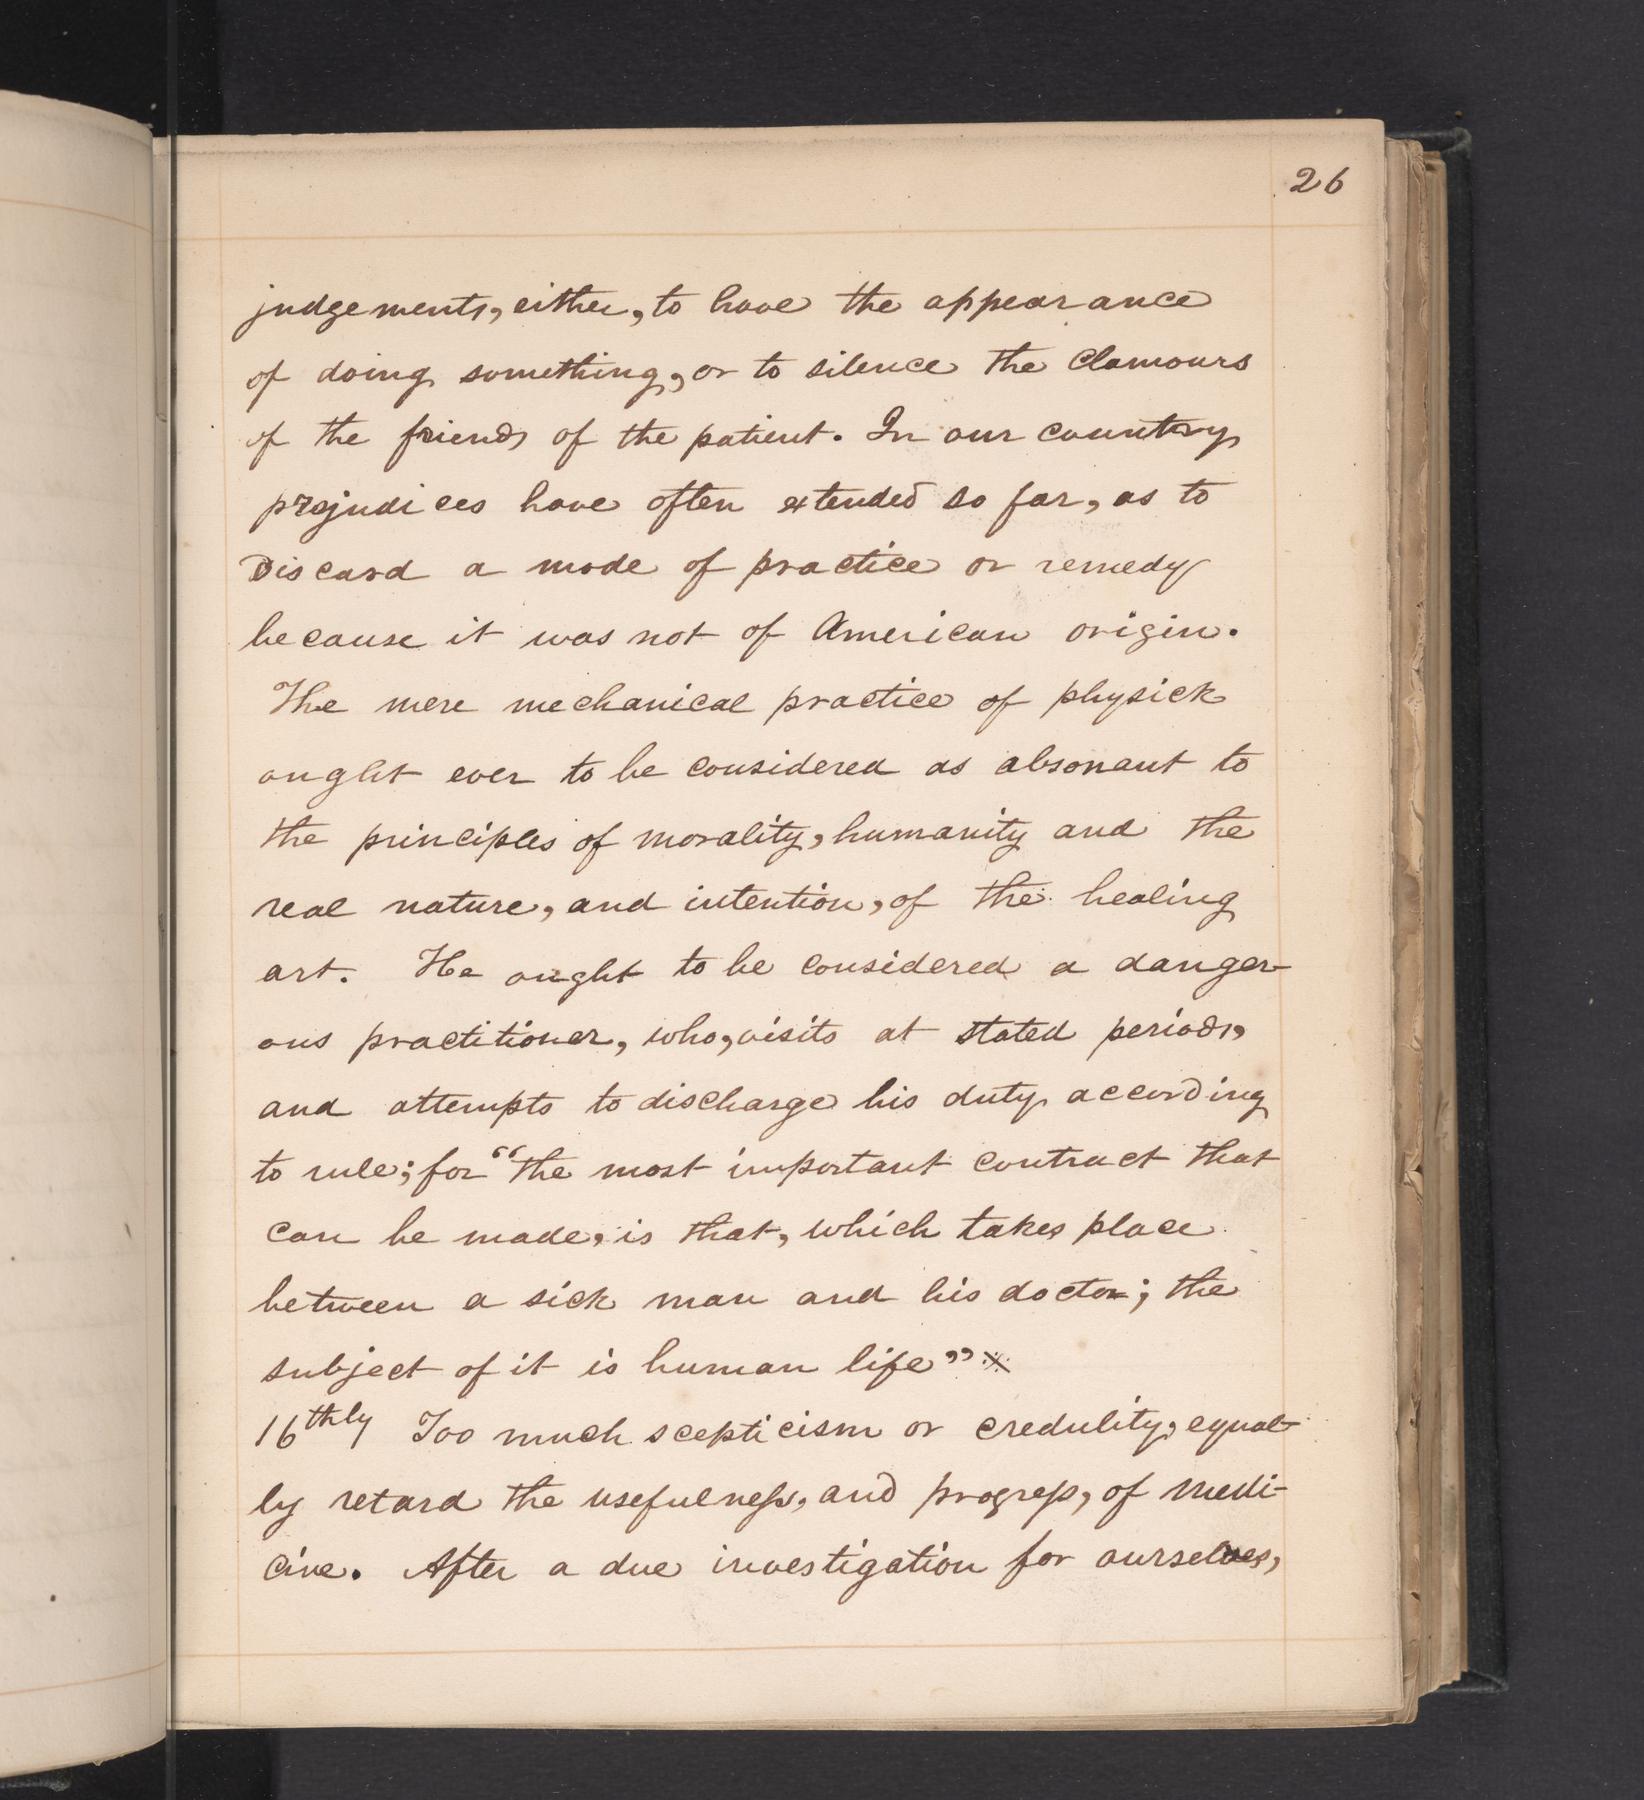 26
judgements, either, to have the appearance
of doing something, or to silence the Clamours
of the friends of the patient. In our country,
prejudices have often extended so far, as to
Discard a mode of practice or remedy
because it was not of American origin.
The mere mechanical practice of physick
ought ever to be considered as absonant to
the principles of morality, humanity and the
real nature, and intention, of the healing
art. He ought to be considered a danger-
ous practitioner, who, visits at stated periods,
and attempts to discharge his duty according
to rule; for “the most important contract that
can be made, is that, which takes place
between a sick man and his doctor; the
subject of it is human life” ※
16thly Too much scepticism or credulity, equal-
ly retard the usefulness, and progress, of medi-
cine. After a due investigation for ourselves,